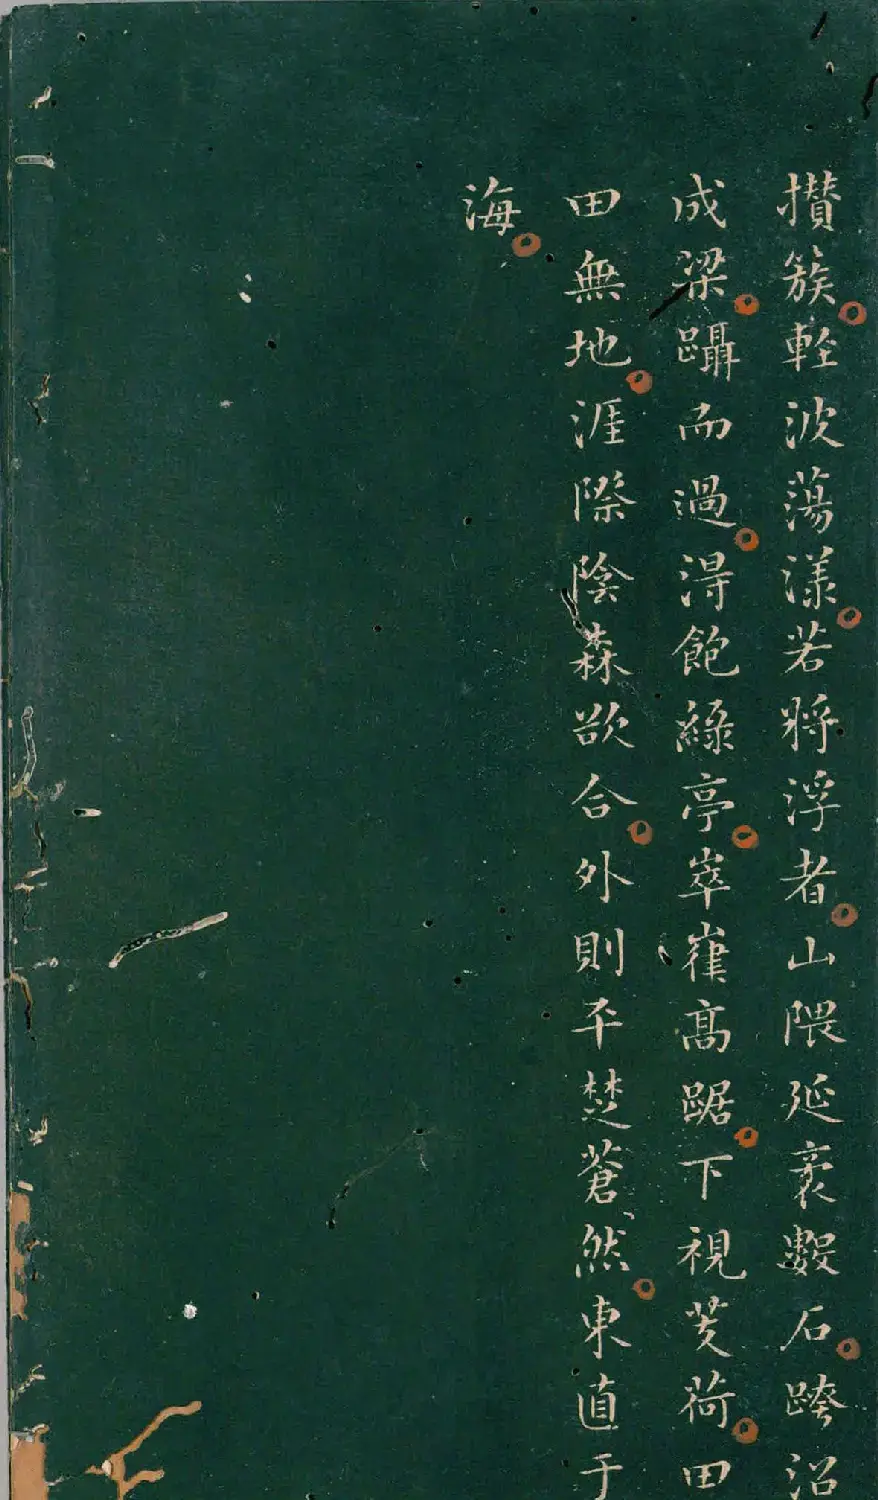 攅簇輕波蕩漾若將浮者山隈延袤數石跨沼
成梁躡而過得飽綠亭崒嵂高踞下視芰荷田
田無地涯際陰森欲合外則平楚蒼然東直于
海